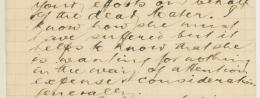 your efforts on behalf
of the dead Mater. I
know how she must
have suffered but it
helps to know that she
was wanting for nothing
in the way of attention
expense & consideration
generally.